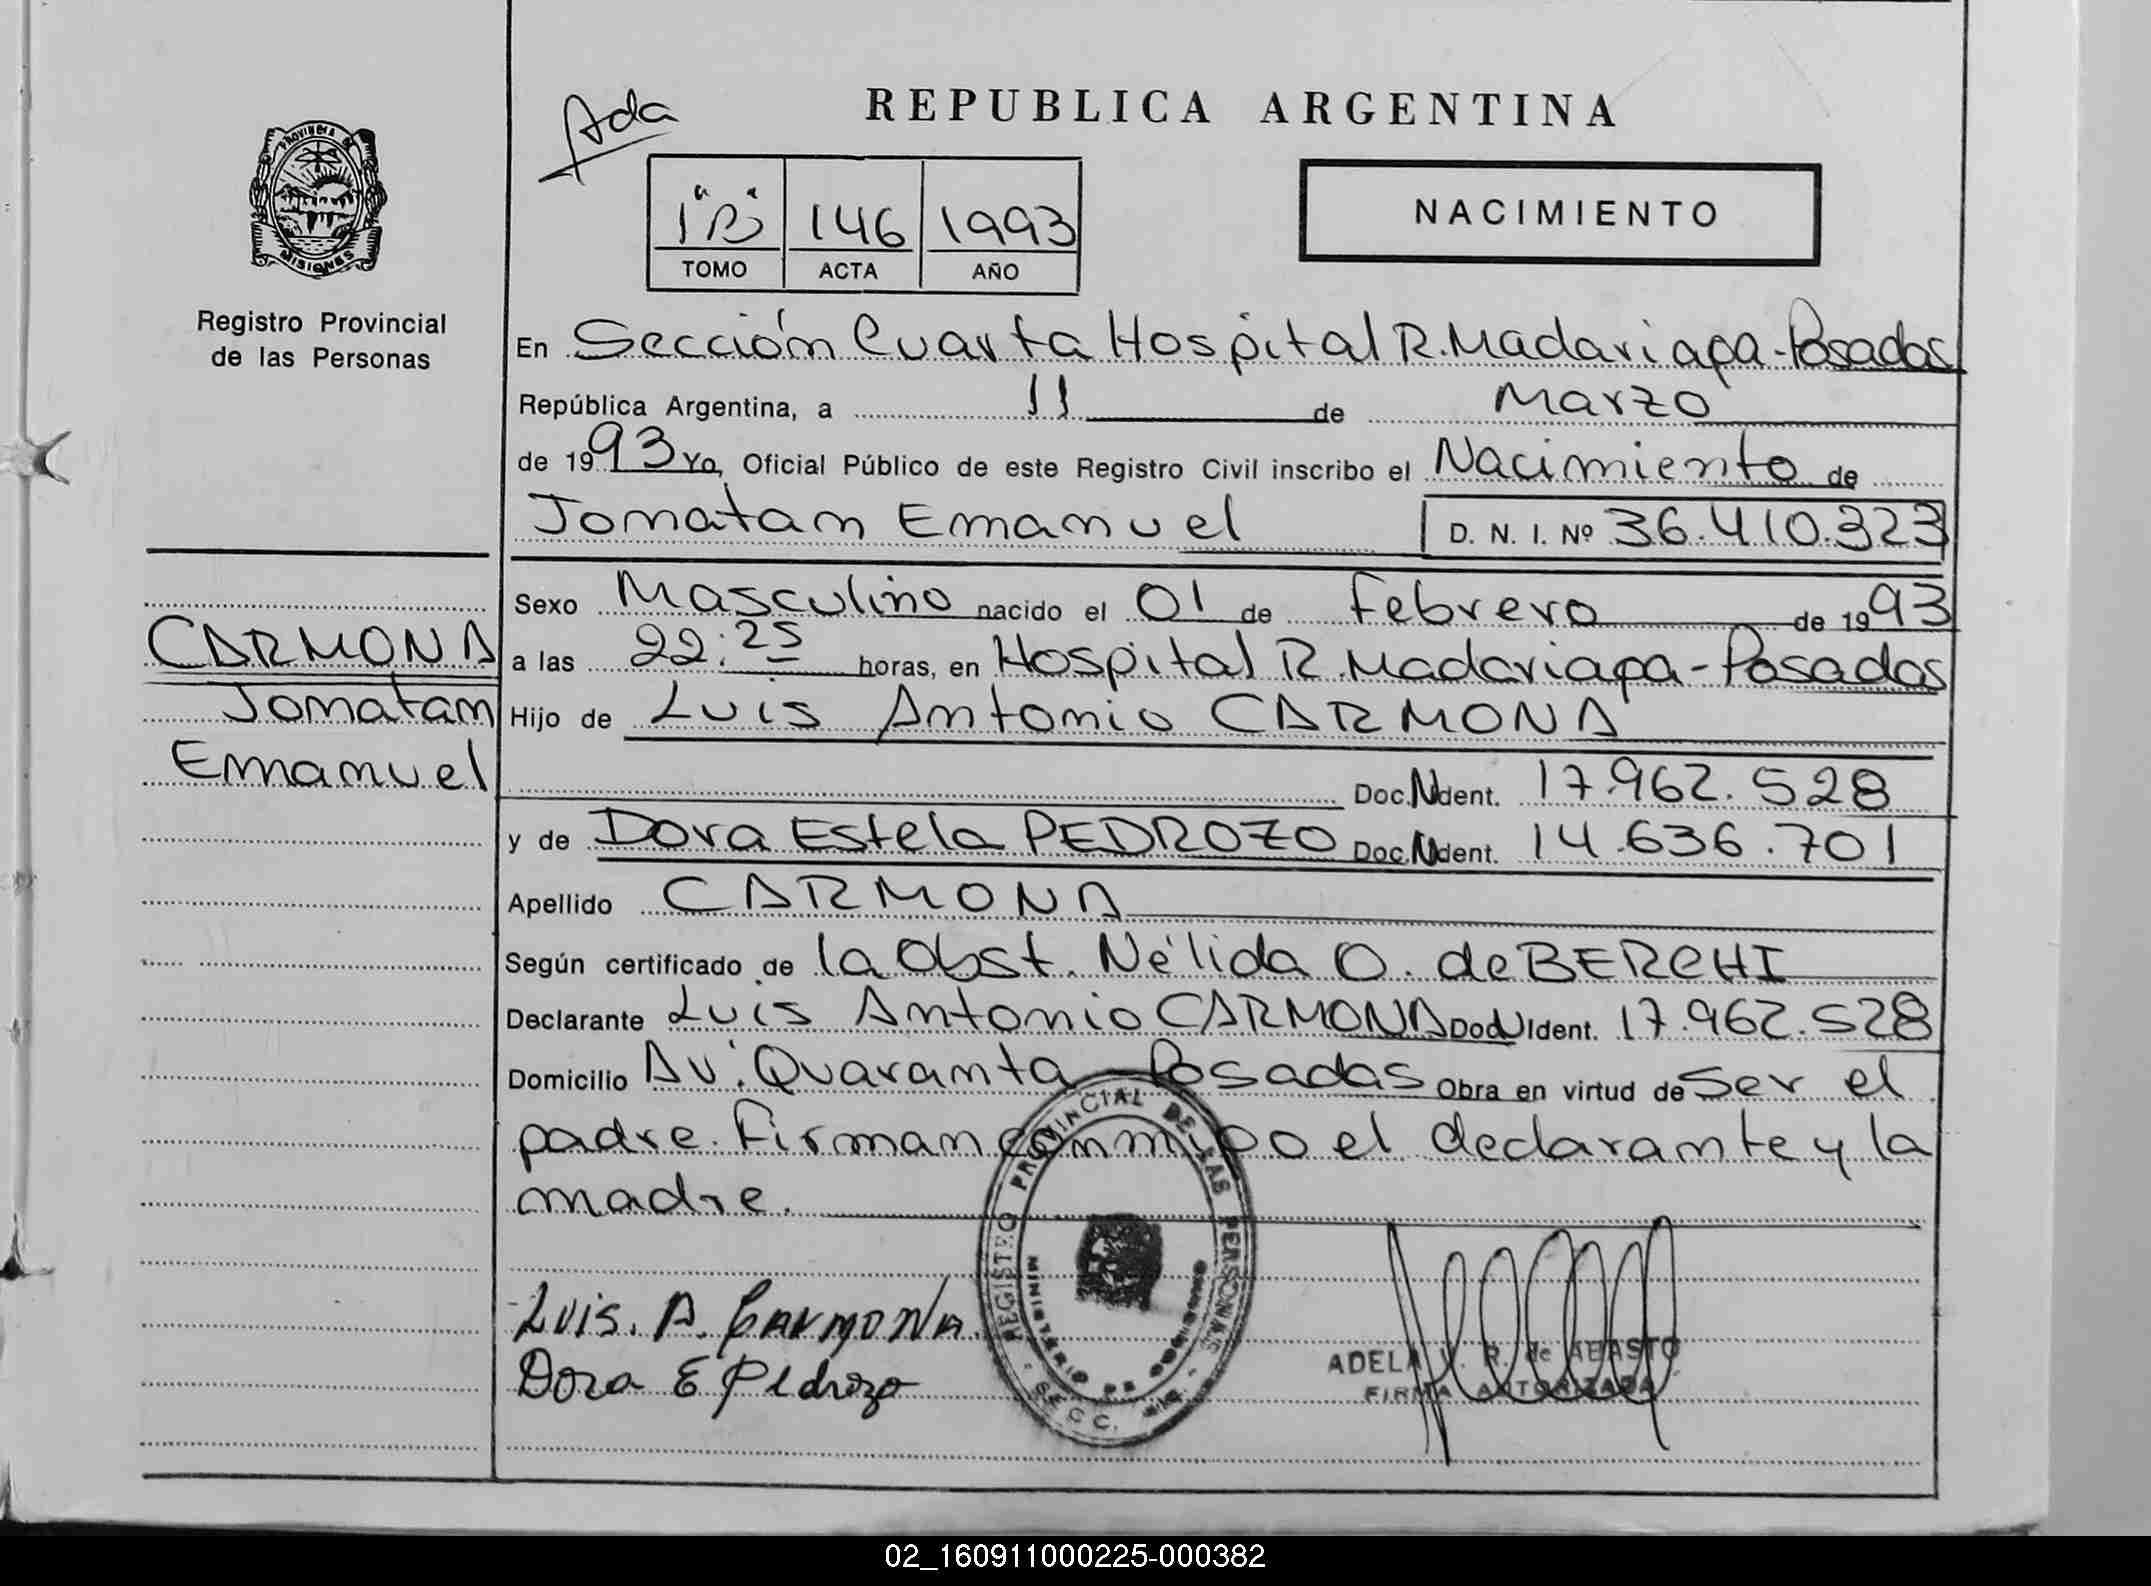 Ada
REPUBLICA ARGENTINA
PROVINCIA DE
MISIONES
1"B" 146 1993
TOMO ACTA AÑO
NACIMIENTO
Registro Provincial
de las Personas
CARMONA
Jonatan
Emanuel
En Sección Cuarta Hospital R. Madariaga - Posadas
República Argentina, a 11 de Marzo
de 1993 Yo, Oficial Público de este Registro Civil inscribo el Nacimiento de
Jonatan Emanuel D. N. I. Nº 36.410.323
Sexo Masculino nacido el 01 de Febrero de 1993
a las 22:25 horas, en Hospital R. Madariaga - Posadas
Hijo de Luis Antonio CARMONA
Doc. N Ident. 17.962.528
y de Dora Estela PEDROZO Doc. N Ident. 14.636.701
Apellido CARMONA
Según certificado de la Obst. Nélida O. de BERCHI
Declarante Luis Antonio CARMONA Doc. N Ident. 17.962.528
Domicilio Av. Quaranta - Posadas Obra en virtud de Ser el
padre. Firman conmigo el declarante y la
madre.
REGISTRO PROVINCIAL DE LAS PERSONAS
MINISTERIO DE GOBIERNO
SECC.
Luis. A. Carmona.
Dora E Pedrozo
ADELA R. de ABASTO
FIRMA AUTORIZADA
02_160911000225-000382